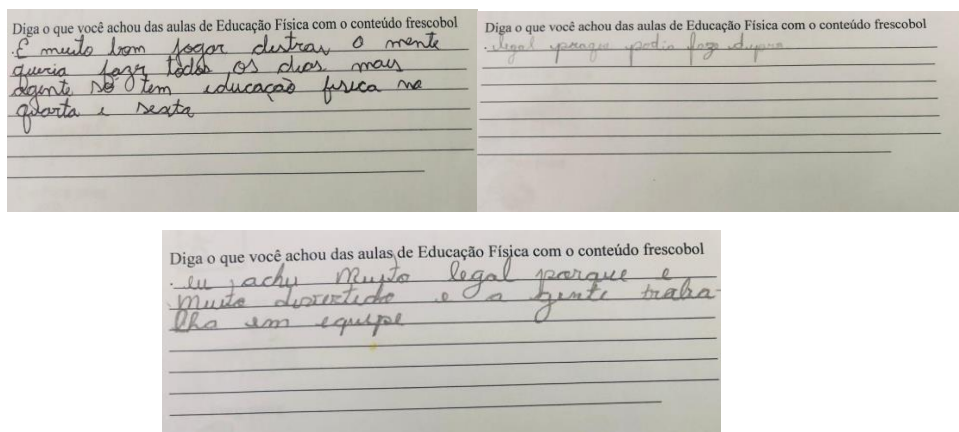 Diga o que você achou das aulas de Educação Física com o conteúdo frescobol
.É muito bom jogar distrai o mente
queria fazr todos os dias mais
agente só tem educação fisica na
quarta e sexta
Diga o que você achou das aulas de Educação Física com o conteúdo frescobol
. legal porque podia faz
Diga o que você achou das aulas de Educação Física com o conteúdo frescobol
. eu achu muito legal porque e
muito divertido e a gente traba-
lha em equipe